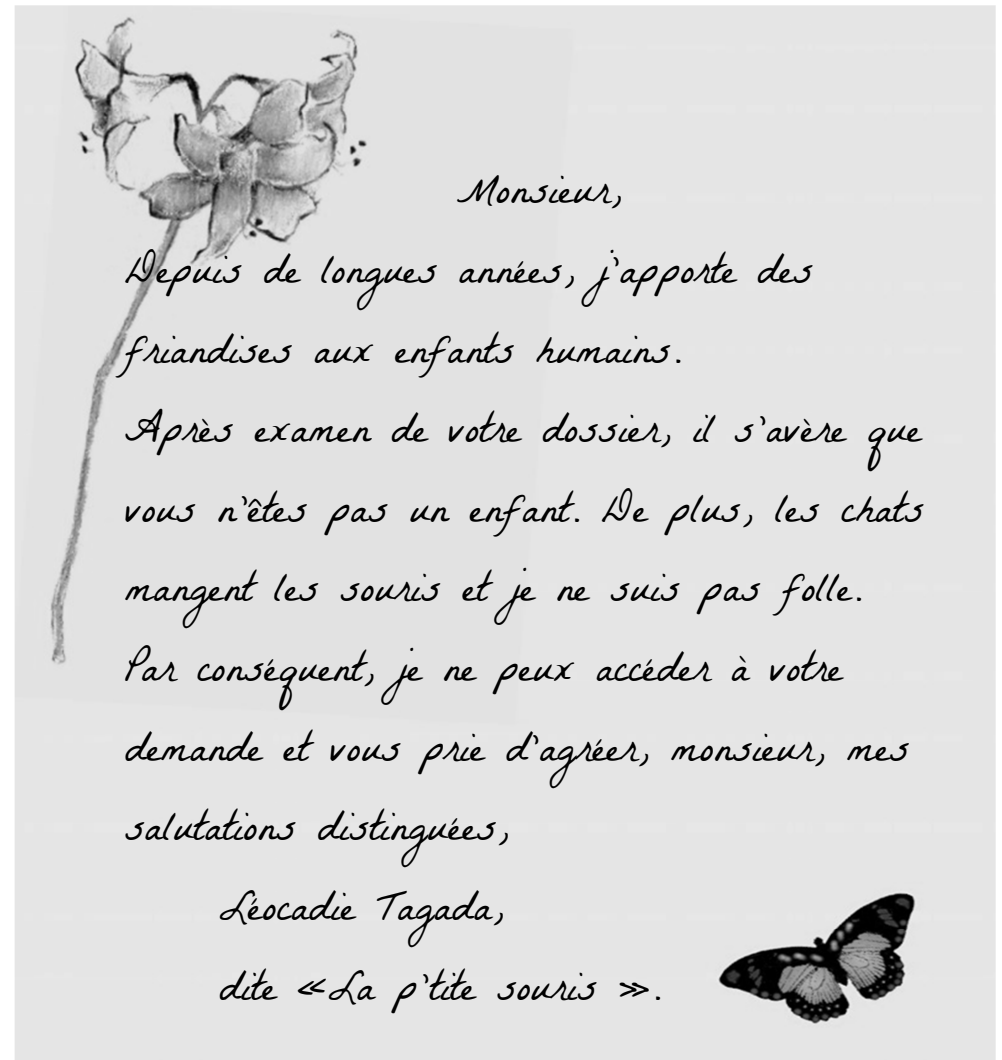 Monsieur,
Depuis de longues années, j'apporte des
friandises aux enfants humains.
Après examen de votre dossier, il s'avère que
vous n'êtes pas un enfant. De plus, les chats
mangent les souris et je ne suis pas folle.
Par conséquent, je ne peux accéder à votre
demande et vous prie d'agréer, monsieur, mes
salutations distinguées,
Léocadie Tagada,
dite «La p'tite souris ».